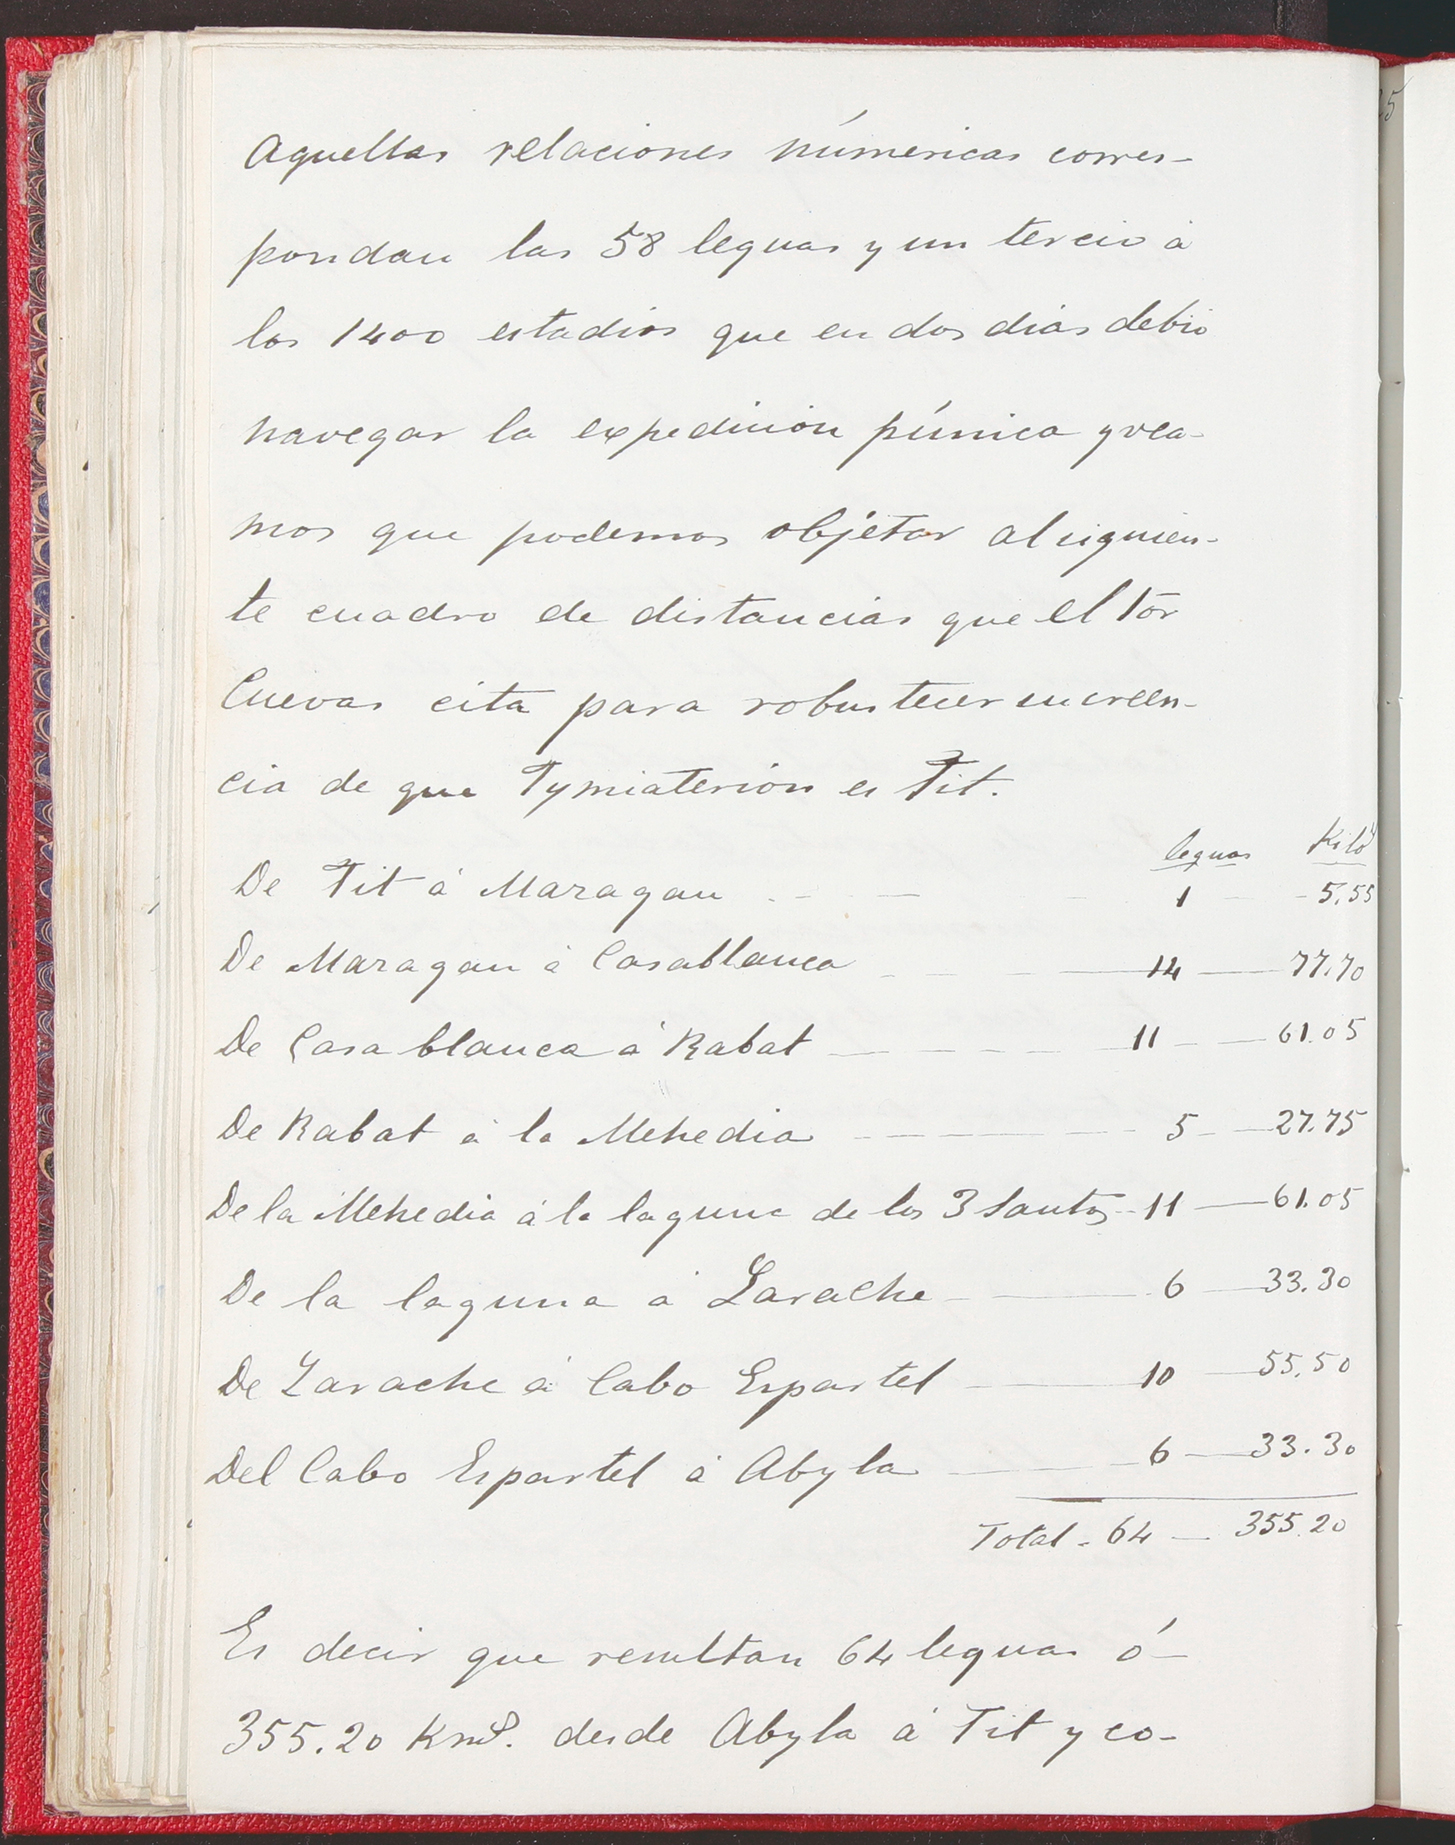 aquellas relaciones númericas corres-
pondan las 58 leguas y un tercio á
los 1400 estadios que en dos dias debió
navegar la expedición púnica y vea-
mos que podemos objetar al siguien-
te cuadro de distancias que el Sor
Cuevas cita para robustecer su creen-
cia de que Tymiaterión es Tit.
leguas Kilos
De Tit á Mazagan 1 5,55
De Mazagan á Casablanca 14 77.70
De Casablanca á Rabat 11 61.05
De Rabat á la Mehedia 5 27.75
De la Mehedia á la laguna de los 3 Santos 11 61.05
De la laguna á Larache 6 33.30
De Larache á Cabo Espartel 10 55.50
Del Cabo Espartel á Abyla 6 33.30
Total - 64 355.20
Es decir que resultan 64 leguas ó
355.20 Kms. desde Abyla á Tit y co-